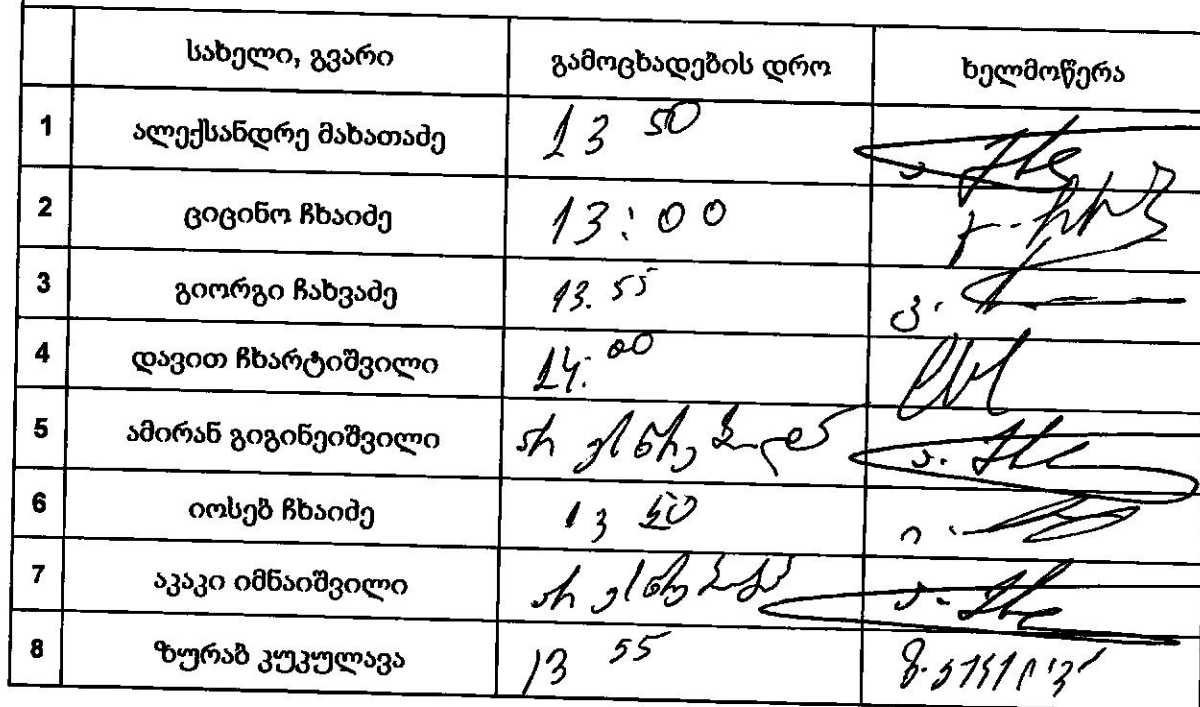 სახელი, გვარი გამოცხადების დრო ხელმოწერა
1 ალექსანდრე მახათაძე 13 50
2 ციცინო ჩხაიძე 13:00
3 გიორგი ჩახვაძე 13.55
4 დავით ჩხარტიშვილი 14.00
5 ამირან გიგინეიშვილი არ ესწრებოდა
6 იოსებ ჩხაიძე 13 50
7 აკაკი იმნაიშვილი არ ესწრებოდა
8 ზურაბ კუკულავა 13 55